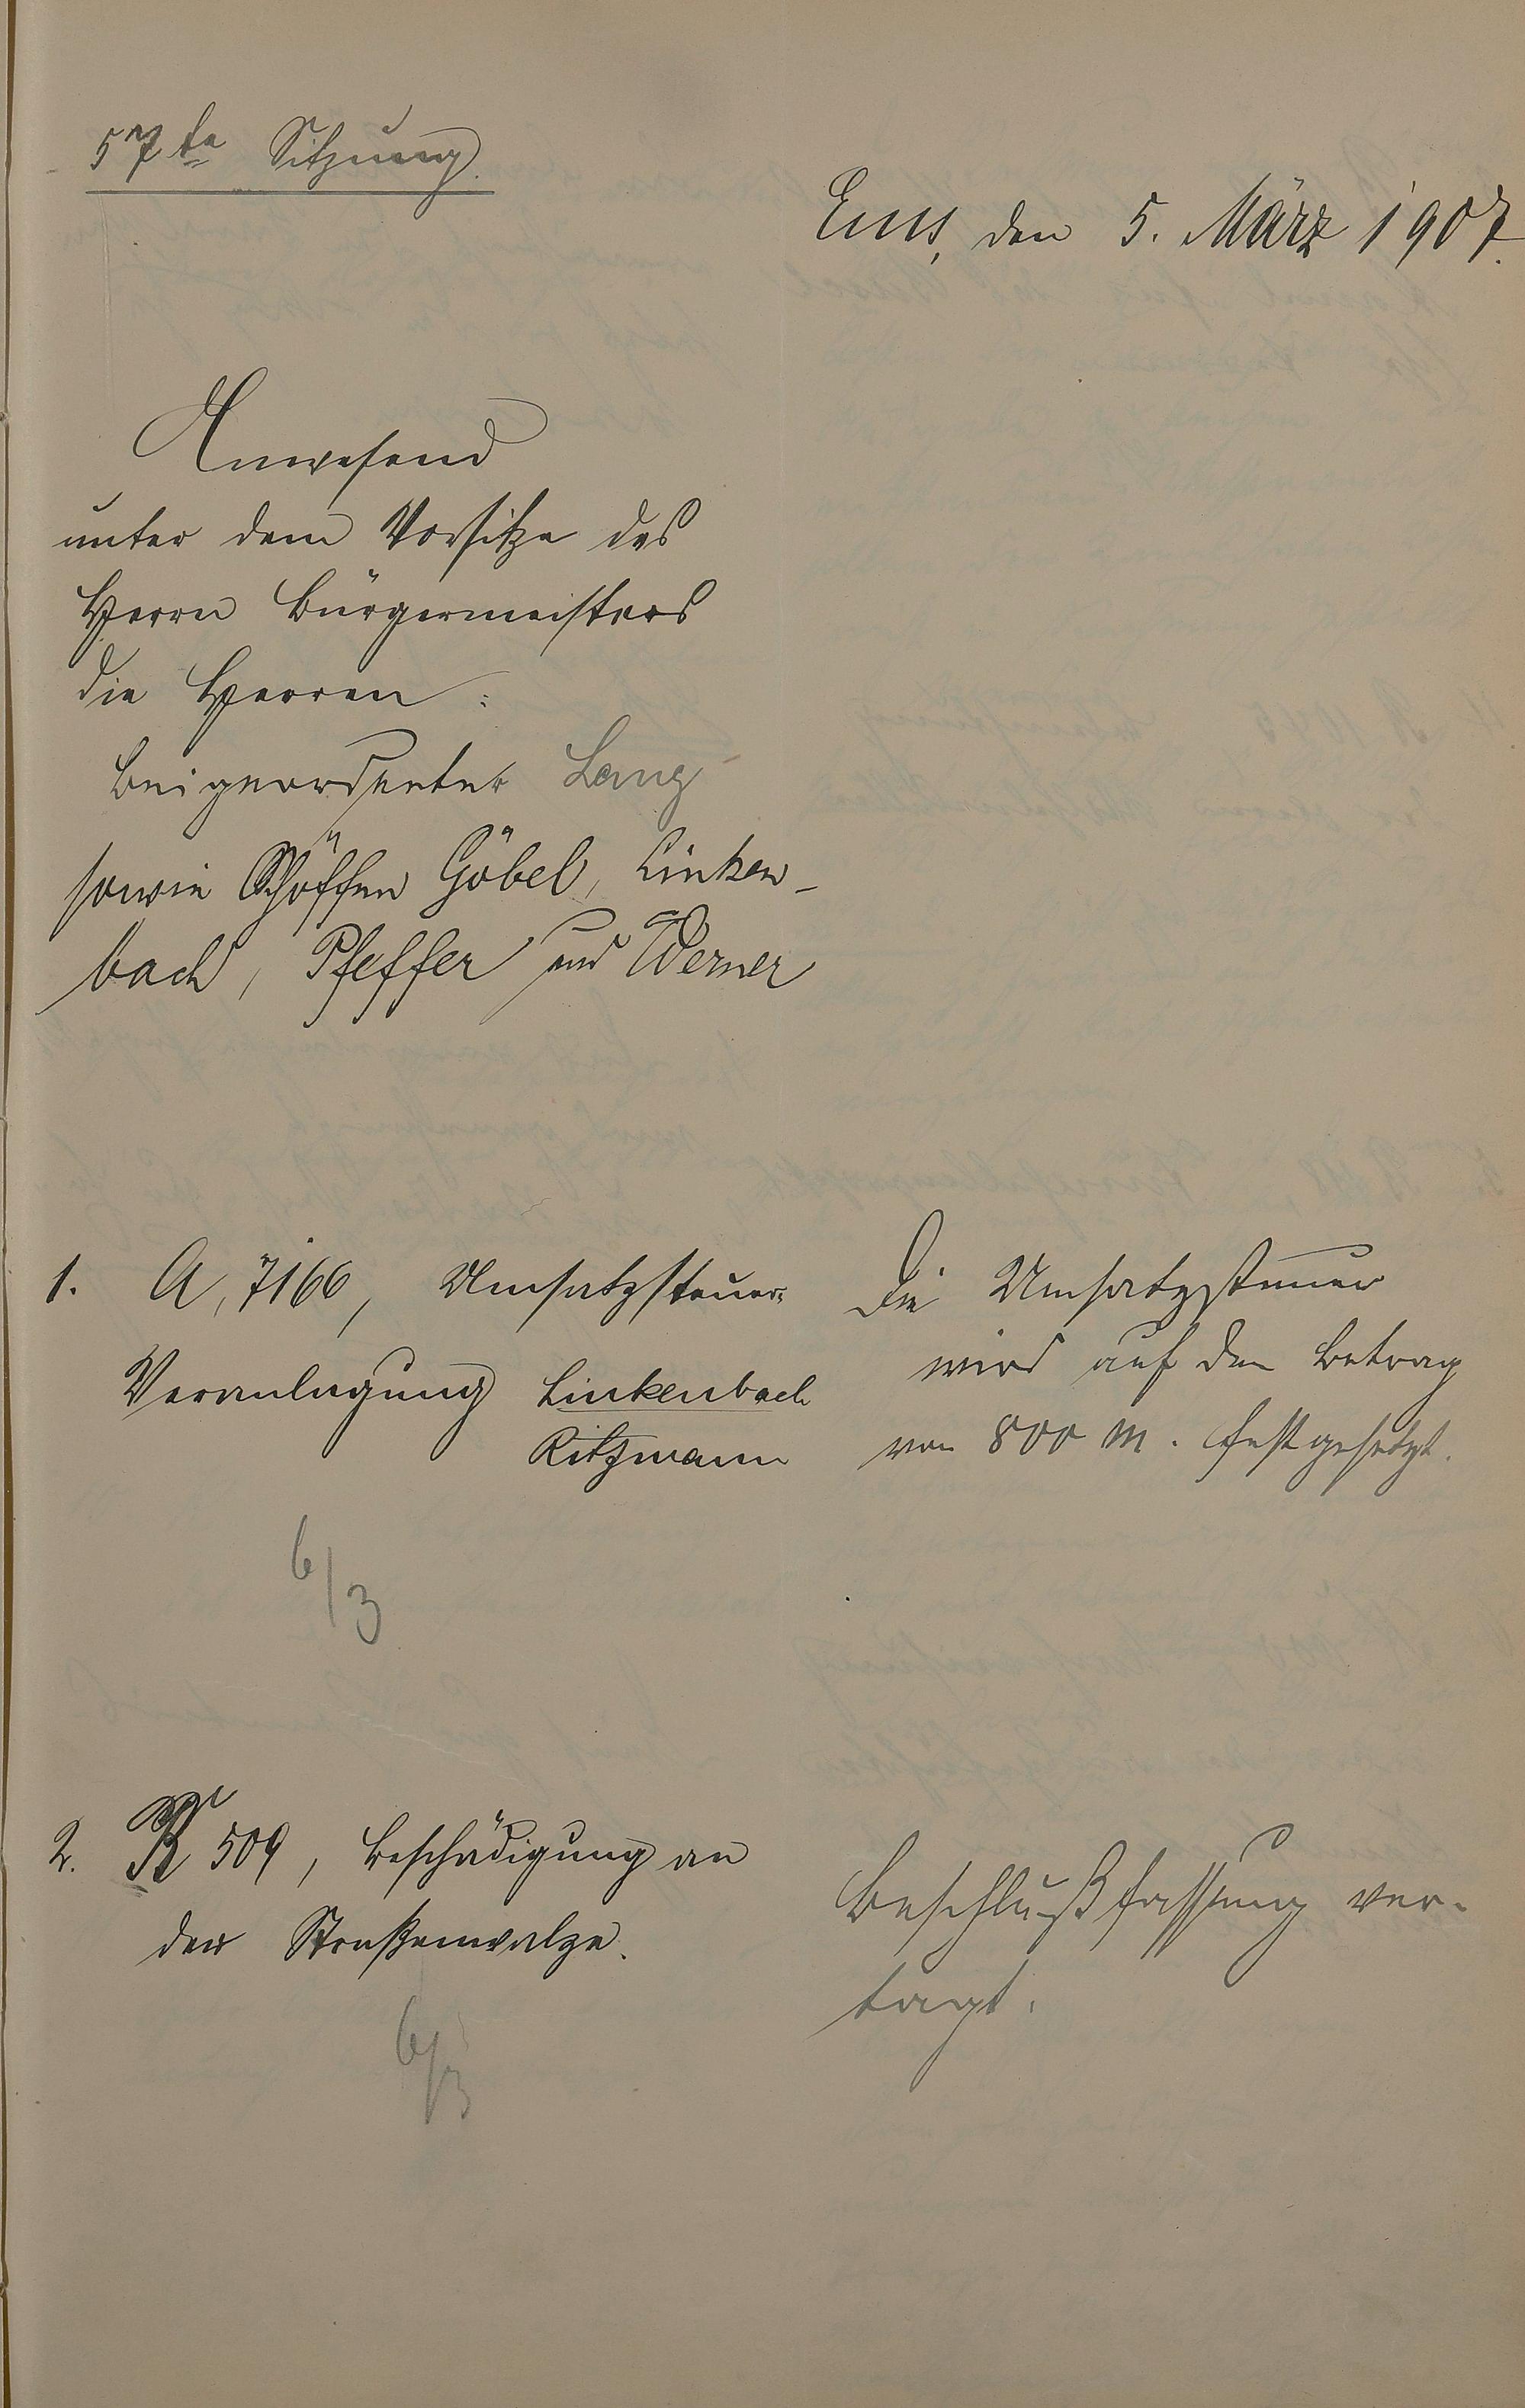 57te Sitzung.
Ems, den 5. März 1907.
Anwesend
unter dem Vorsitze des
Herrn Bürgermeisters
die Herren:
Beigeordneter Lang
sowie Schöffen Göbel, Linken-
bach, Pfeffer und Werner
1. A, 7166, Umsatzsteuer-
Veranlagung Linkenbach
Ritzmann
Die Umsatzsteuer
wird auf den Betrag
von 800 M. festgesetzt.
6/3
2. K 509, Beschädigung an
der Straßenwalze.
Beschlußfassung ver-
tagt.
6/3